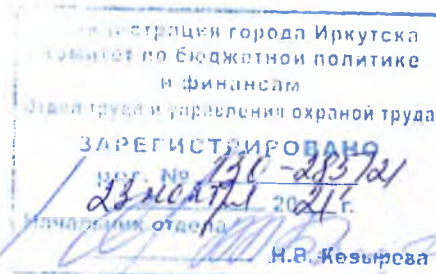 Администрация города Иркутска
Комитет по бюджетной политике
и финансам
Отдел труда и управления охраной труда
ЗАРЕГИСТРИРОВАНО
рег. № 130-285/21
23 ноября 2021 г.
Начальник отдела
Н.В. Козырева